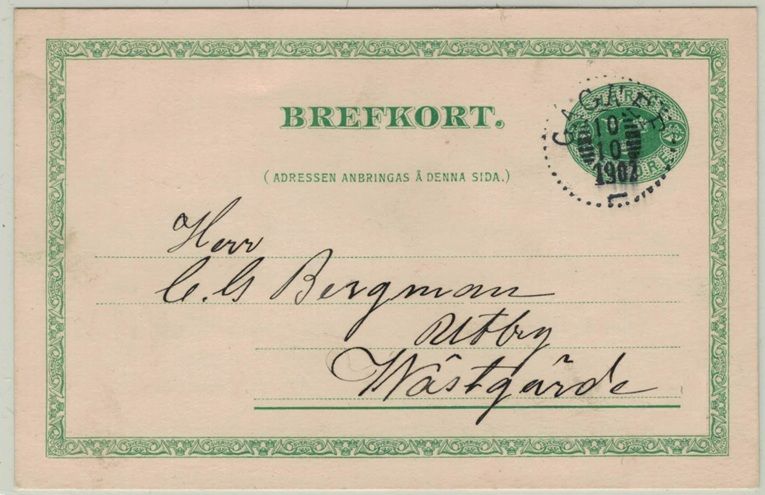 BREFKORT.
(ADRESSEN ANBRINGAS Å DENNA SIDA.)
10
10
1902
Herr
C. G Bergman
Utby
Wästgärde